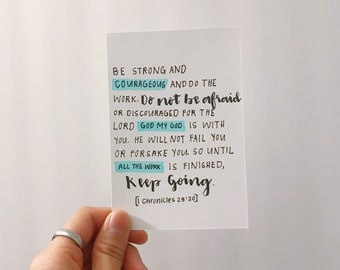 BE STRONG AND
COURAGEOUS AND DO THE
WORK. Do not be afraid
OR DISCOURAGED FOR THE
LORD GOD MY GOD IS WITH
YOU. HE WILL NOT FAIL YOU
OR FORSAKE YOU SO UNTIL
ALL THE WORK IS FINISHED,
Keep Going.
[1 Chronicles 28:20]